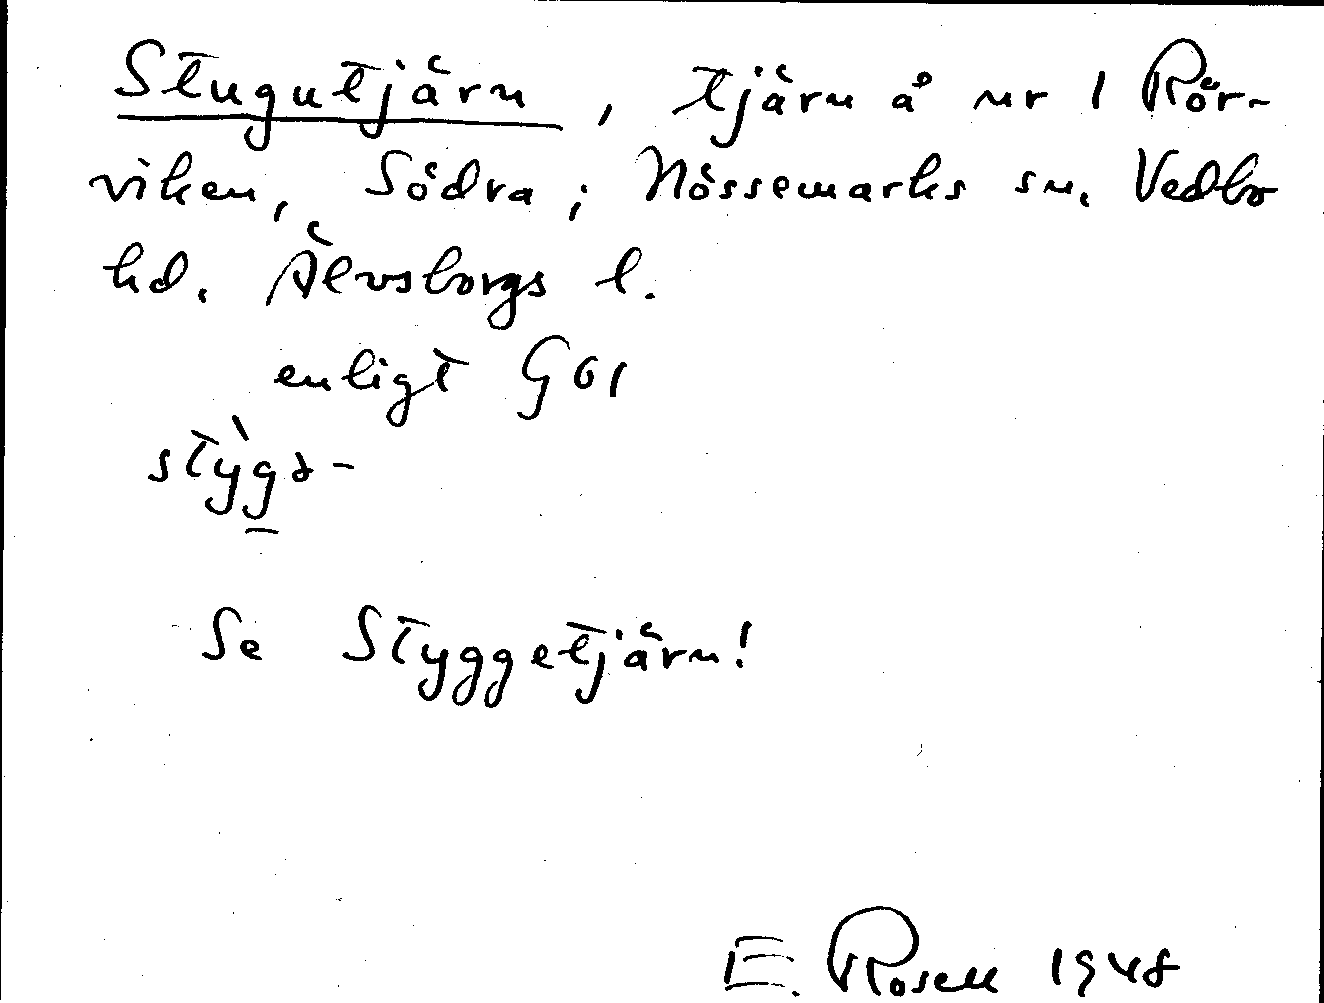 Stugutjärn, tjärn å nr 1 Rör-
viken, Södra; Nössemarks sn. Vedbo
hd. Älvsborgs l.
enligt G01
stỳgə-
Se Styggetjärn!
E. Rosell 1948